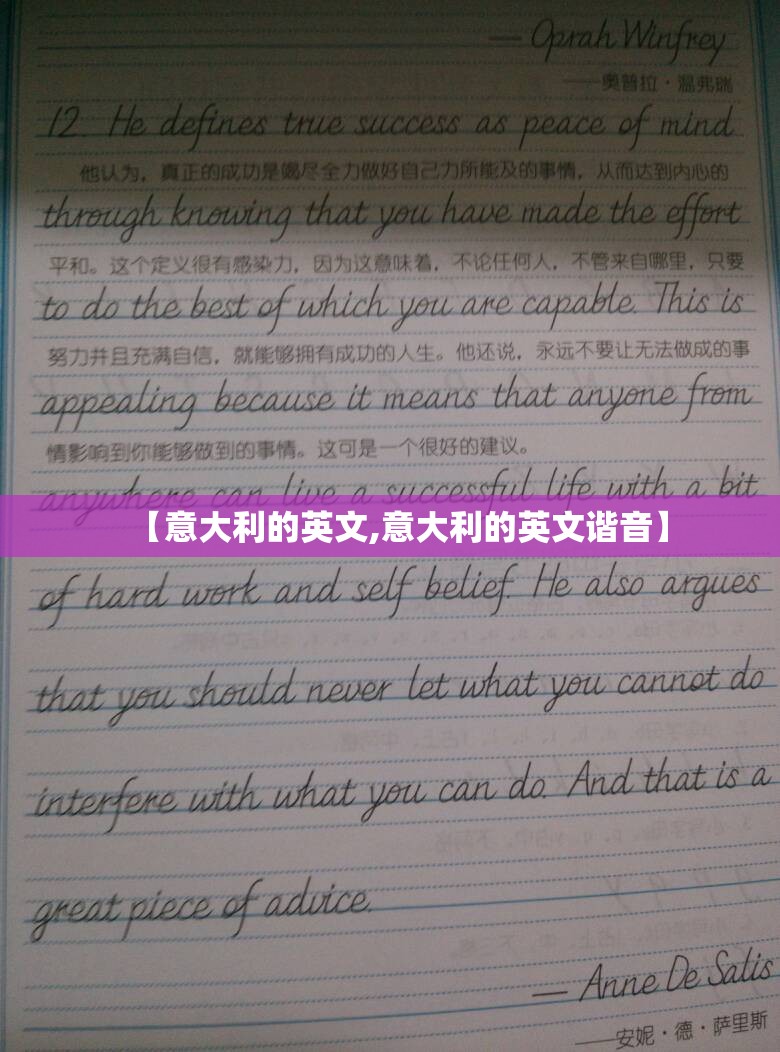 — Oprah Winfrey
——奥普拉·温弗瑞
12. He defines true success as peace of mind
他认为，真正的成功是竭尽全力做好自己力所能及的事情，从而达到内心的
through knowing that you have made the effort
平和。这个定义很有感染力，因为这意味着，不论任何人，不管来自哪里，只要
to do the best of which you are capable. This is
努力并且充满自信，就能够拥有成功的人生。他还说，永远不要让无法做成的事
appealing because it means that anyone from
情影响到你能够做到的事情。这可是一个很好的建议。
anywhere can live a successful life with a bit
【意大利的英文,意大利的英文谐音】
of hard work and self belief. He also argues
that you should never let what you cannot do
interfere with what you can do. And that is a
great piece of advice.
— Anne De Salis
——安妮·德·萨里斯